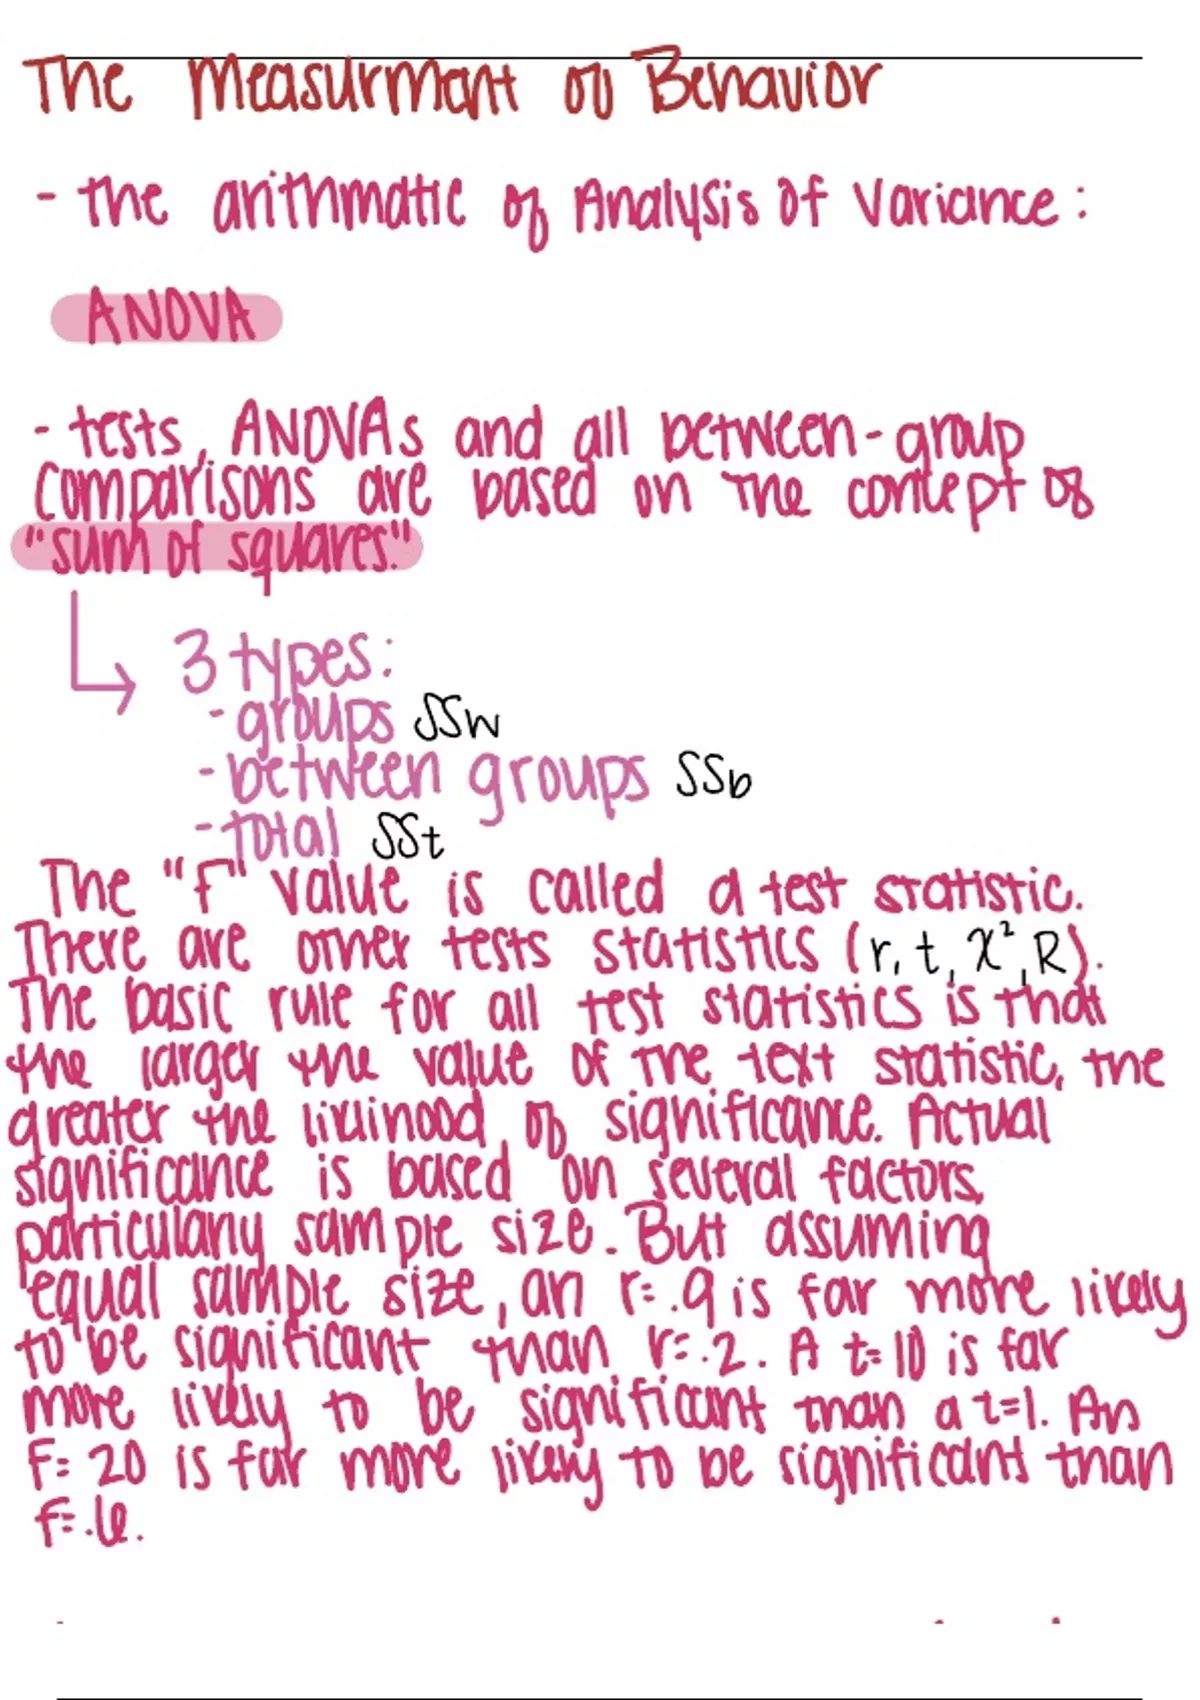 The Measurment of Behavior
- the arithmatic of Analysis of Variance:
ANOVA
- tests, ANOVAs and all between-group
comparisons are based on the concept of
"sum of squares."
3 types:
- groups SSw
- between groups SSb
- total SSt
The "F" value is called a test statistic.
There are other tests statistics (r, t, X², R).
The basic rule for all test statistics is that
the larger the value of the text statistic, the
greater the liklinood of significance. Actual
significance is based on several factors,
particularly sample size. But assuming
equal sample size, an r= .9 is far more likely
to be significant than r= .2. A t= 10 is far
more likely to be significant than a t=1. An
F= 20 is far more likely to be significant than
F= .6.